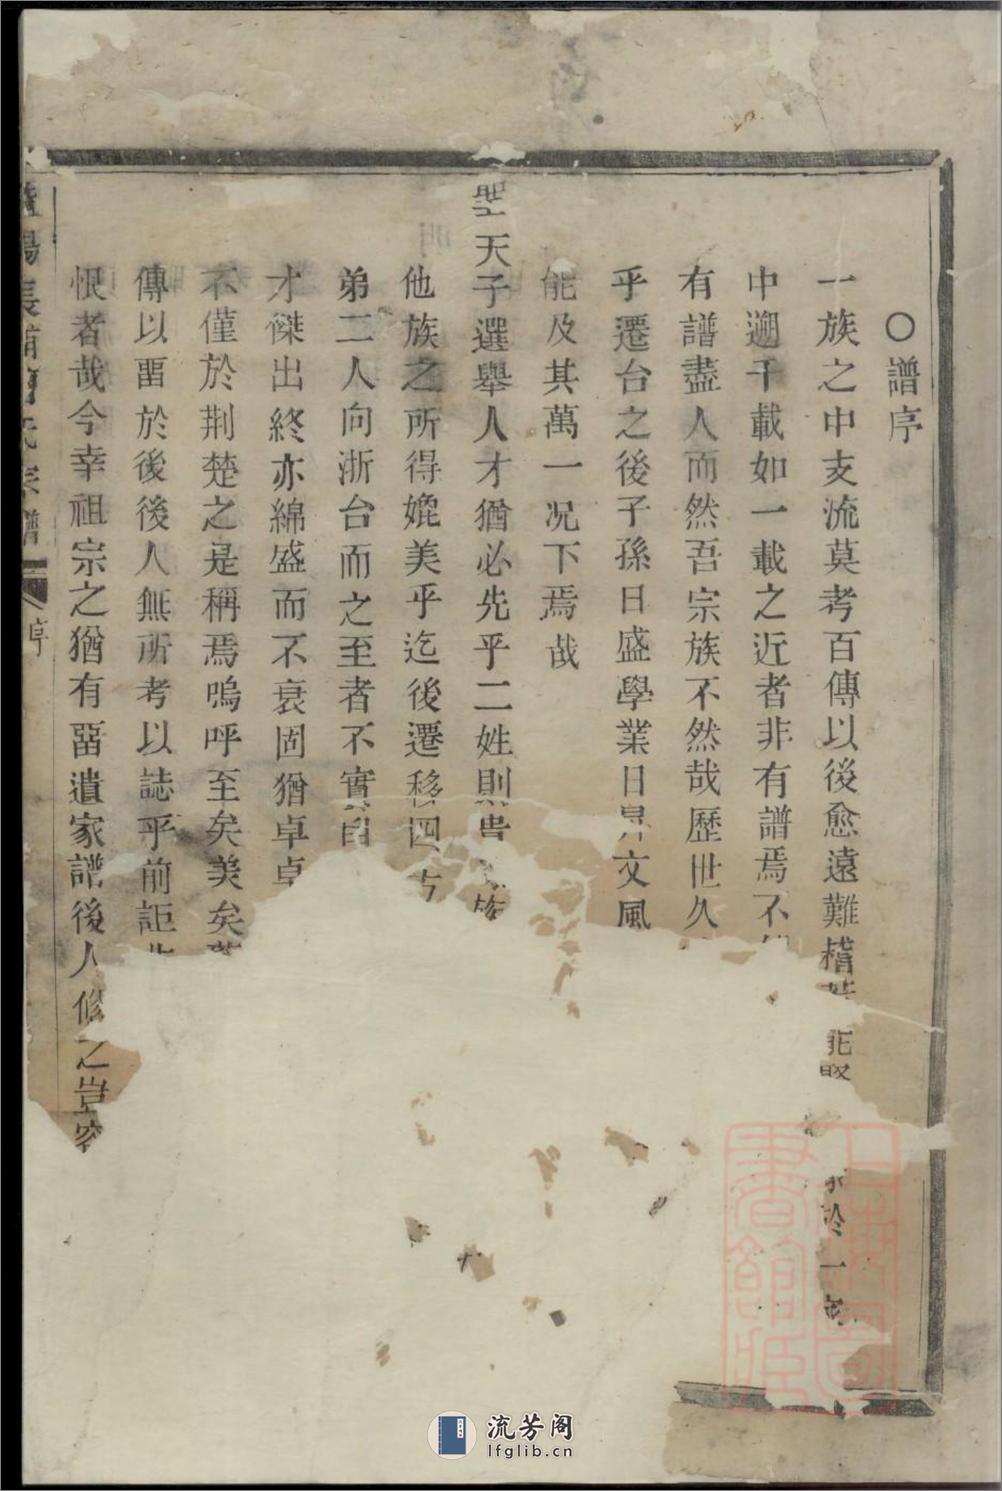 ○譜序
一族之中支流莫考百傳以後愈遠難稽
於一
中遡千載如一載之近者非有譜焉不
有譜盡人而然吾宗族不然哉歷世久
乎遷台之後子孫日盛學業日昇文風
能及其萬一况下焉哉
聖天子選舉人才猶必先乎二姓則貴 族
他族之所得媲美乎迄後遷移四方
弟二人向浙台而之至者不實
才傑出終亦綿盛而不衰固猶卓卓
不僅於荆楚之是稱焉嗚呼至矣美矣
傳以畱於後後人無所考以誌乎前詎非
恨者哉今幸祖宗之猶有畱遺家譜後人修之豈
陽長 氏宗譜
序
上海圖書館藏
流芳阁
lfglib.cn